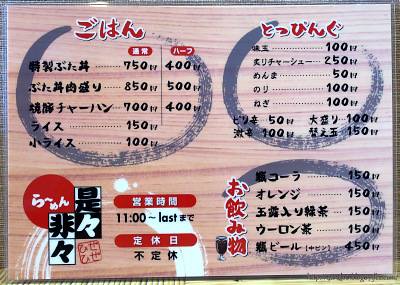 ごはん
通常 ハーフ
特製ぶた丼 750円 400円
ぶた丼肉盛り 850円 500円
焼豚チャーハン 700円 400円
ライス 150円
小ライス 100円
とっぴんぐ
味玉 100円
炙りチャーシュー 250円
めんま 50円
のり 100円
ねぎ 100円
ピリ辛 50円 大盛り 100円
激辛 100円 替え玉 150円
らーめん
是々非々
ぜぜひひ
営業時間
11:00~lastまで
定休日
不定休
お飲み物
瓶コーラ 150円
オレンジ 150円
玉露入り緑茶 150円
ウーロン茶 150円
瓶ビール[中ビン] 450円